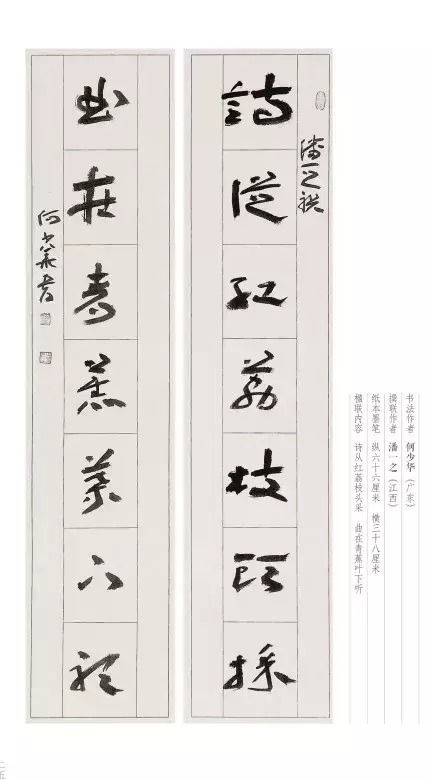 詩從紅荔枝頭採
潘一之撰
曲在青蕉葉下聽
何少華書
书法作者 何少华（广东）
撰联作者 潘一之（江西）
纸本墨笔 纵六十六厘米 横三十八厘米
楹联内容 诗从红荔枝头采 曲在青蕉叶下听
二五